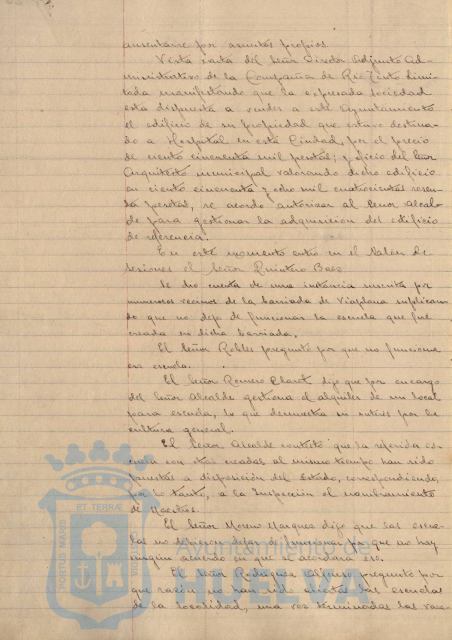 ausentarse por asuntos propios.
Vista carta del Señor Director Adjunto Ad-
ministrativo de la Compañia de Rio Tinto Limi-
tada manifestando que la expresada Sociedad
esta dispuesta a vender a este Ayuntamiento
el edificio de su propiedad que estuvo destina-
do a Hospital en esta Ciudad, por el precio
de ciento cincuenta mil pesetas; y oficio del Señor
Arquitecto municipal valorando dicho edificio
en ciento cincuenta y ocho mil cuatrocientas sesen-
ta pesetas, se acordo autorizar al Señor Alcal-
de para gestionar la adquisicion del edificio
de referencia.
En este momento entro en el Salon de
sesiones el Señor Quintero Baez
Se dio cuenta de una instancia suscrita por
numerosos vecinos de la barriada de Viaplana suplican-
do que no deje de funcionar la escuela que fue
creada en dicha barriada.
El Señor Robles pregunto por que no funciona
esa escuela.
El Señor Romero Claret dijo que por encargo
del Señor Alcalde gestiona el alquiler de un local
para escuela, lo que demuestra su interes por la
cultura general.
El Señor Alcalde contesto que la referida es-
cuela con otras creadas al mismo tiempo han sido
puestas a disposición del Estado, correspondiendo,
por lo tanto, a la Inspeccion el nombramiento
de Maestros.
El Señor Moreno Marquez dijo que las escue-
las no debieron dejar de funcionar por que no hay
ningun acuerdo en que se acordara eso.
El Señor Rodriguez pregunto por
que razon no han sido abiertas las escuelas
de la localidad, una vez terminadas las vaca-
PORTUS MARIS
ET TERRÆ
Ayuntamiento de
HUELVA